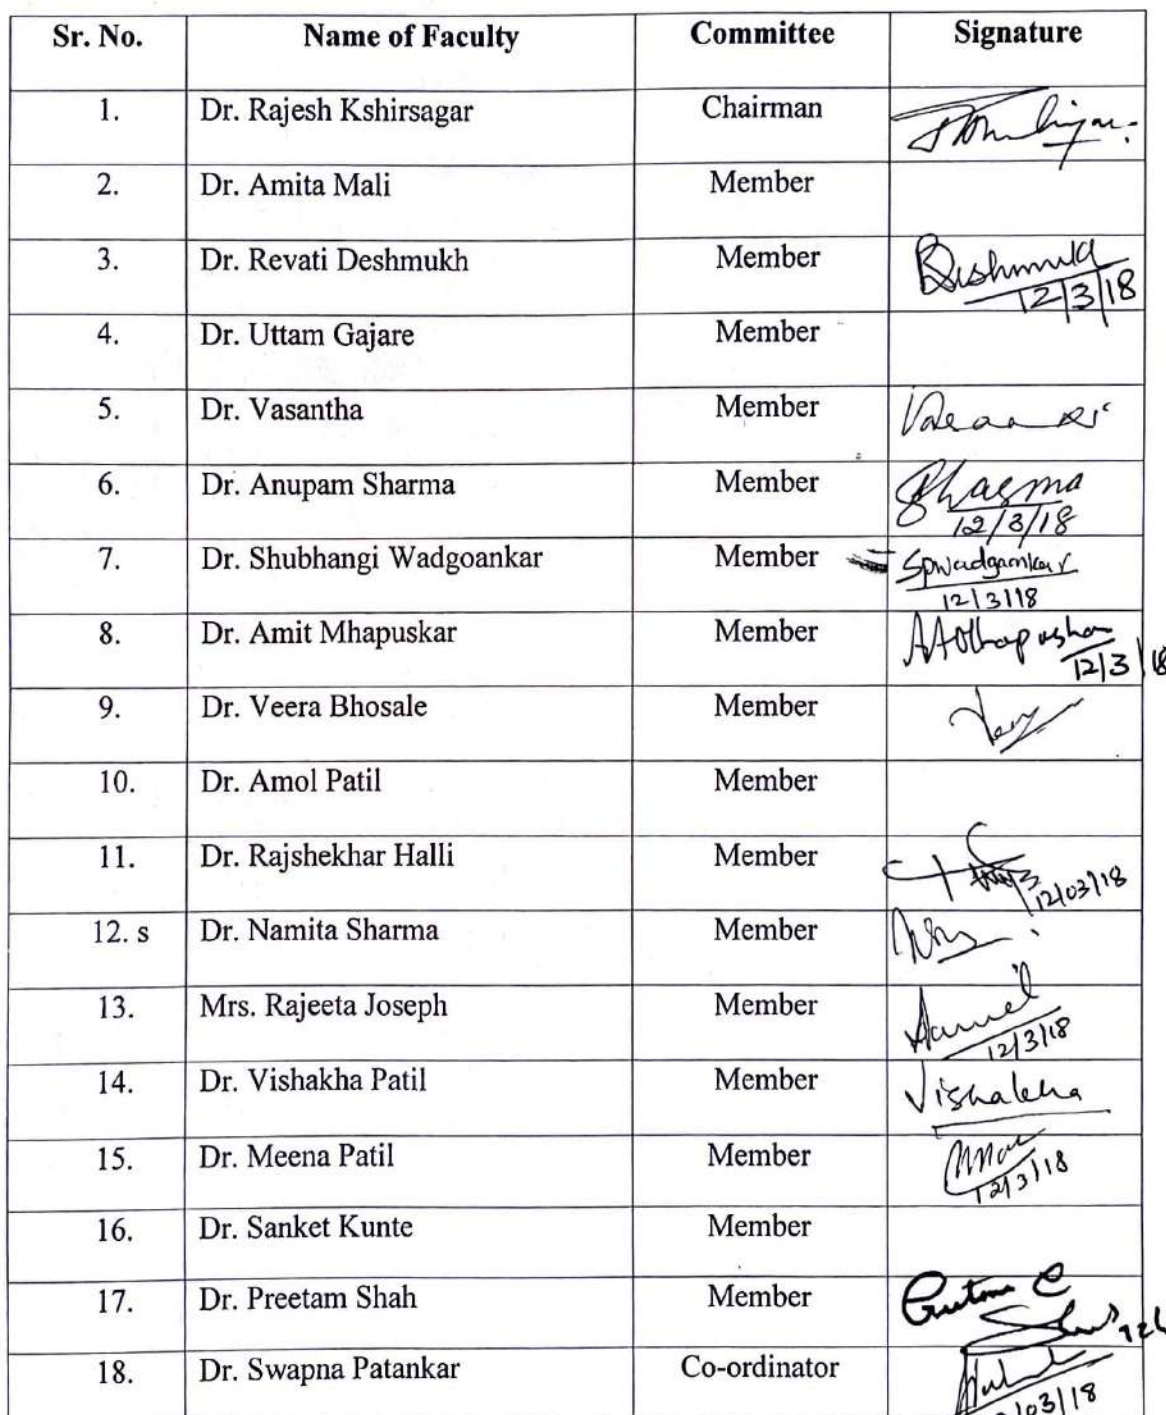 Sr. No. Name of Faculty Committee Signature
1. Dr. Rajesh Kshirsagar Chairman
2. Dr. Amita Mali Member
3. Dr. Revati Deshmukh Member Deshmukh
12/3/18
4. Dr. Uttam Gajare Member
5. Dr. Vasantha Member
6. Dr. Anupam Sharma Member Sharma
12/3/18
7. Dr. Shubhangi Wadgoankar Member Spwadgaonkar
12/3/18
8. Dr. Amit Mhapuskar Member
12/3/18
9. Dr. Veera Bhosale Member
10. Dr. Amol Patil Member
11. Dr. Rajshekhar Halli Member
12/03/18
12. s Dr. Namita Sharma Member
13. Mrs. Rajeeta Joseph Member
12/3/18
14. Dr. Vishakha Patil Member Vishakha
15. Dr. Meena Patil Member
12/3/18
16. Dr. Sanket Kunte Member
17. Dr. Preetam Shah Member
18. Dr. Swapna Patankar Co-ordinator
/03/18